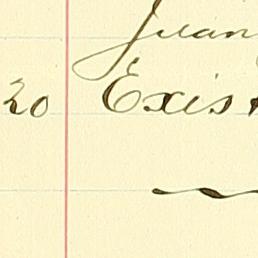 Juan
20 Exis